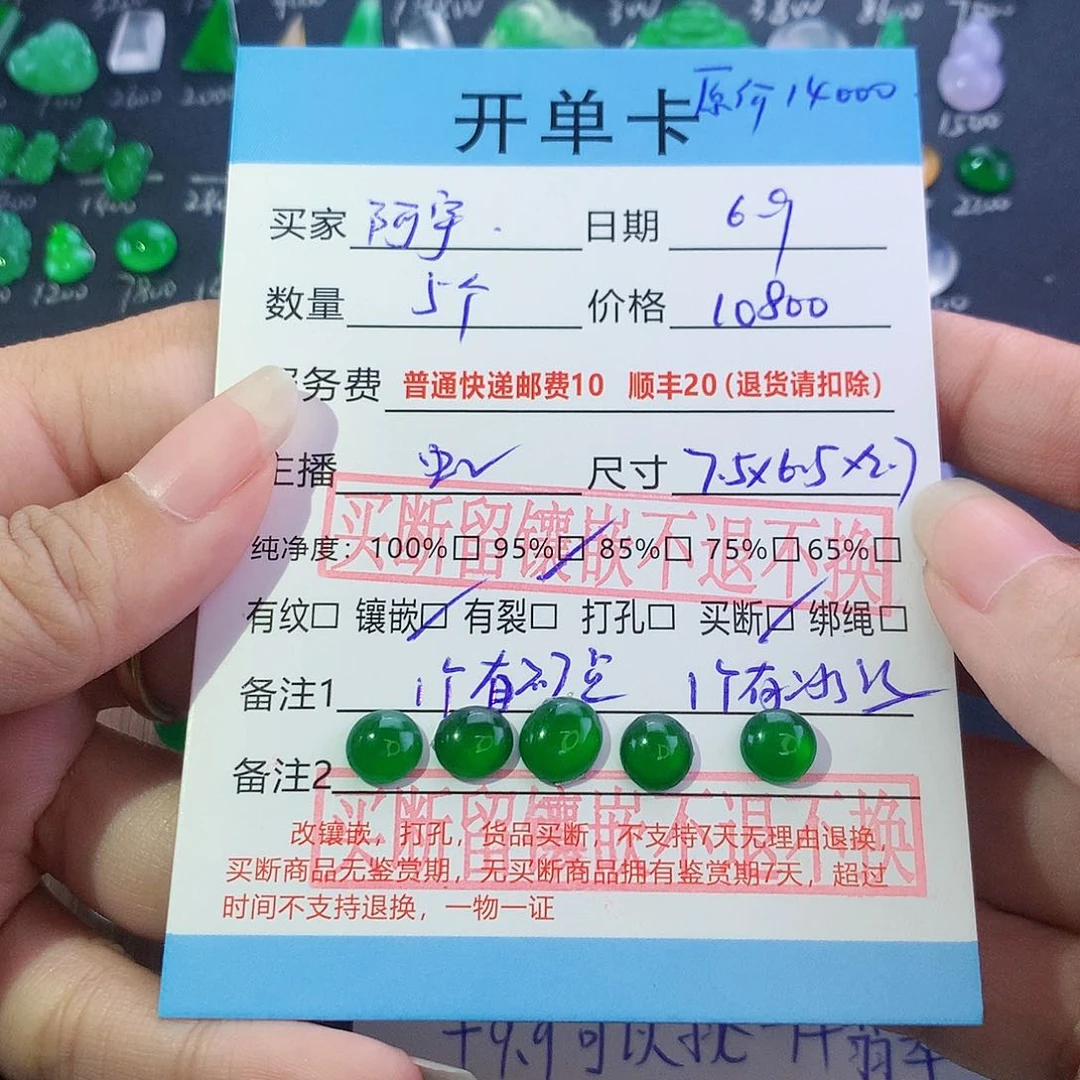 700 2600 2000
1500
2200
1200 7800
开单卡 原价14000
买家 阿宇. 日期 6.9
数量 5个 价格 10800
务费 普通快递邮费10 顺丰20（退货请扣除）
主播 尺寸 7.5x6.5x2.7
买断留镶嵌不退不换
纯净度：100%□ 95%□ 85%□ 75%□ 65%□
有纹□ 镶嵌□ 有裂□ 打孔□ 买断□ 绑绳□
备注1 1个有 点 1个有冰
备注2
买断留镶嵌不退不换
改镶嵌，打孔，货品买断，不支持7天无理由退换，
买断商品无鉴赏期，无买断商品拥有鉴赏期7天，超过
时间不支持退换，一物一证
9.9可以挑一件翡翠